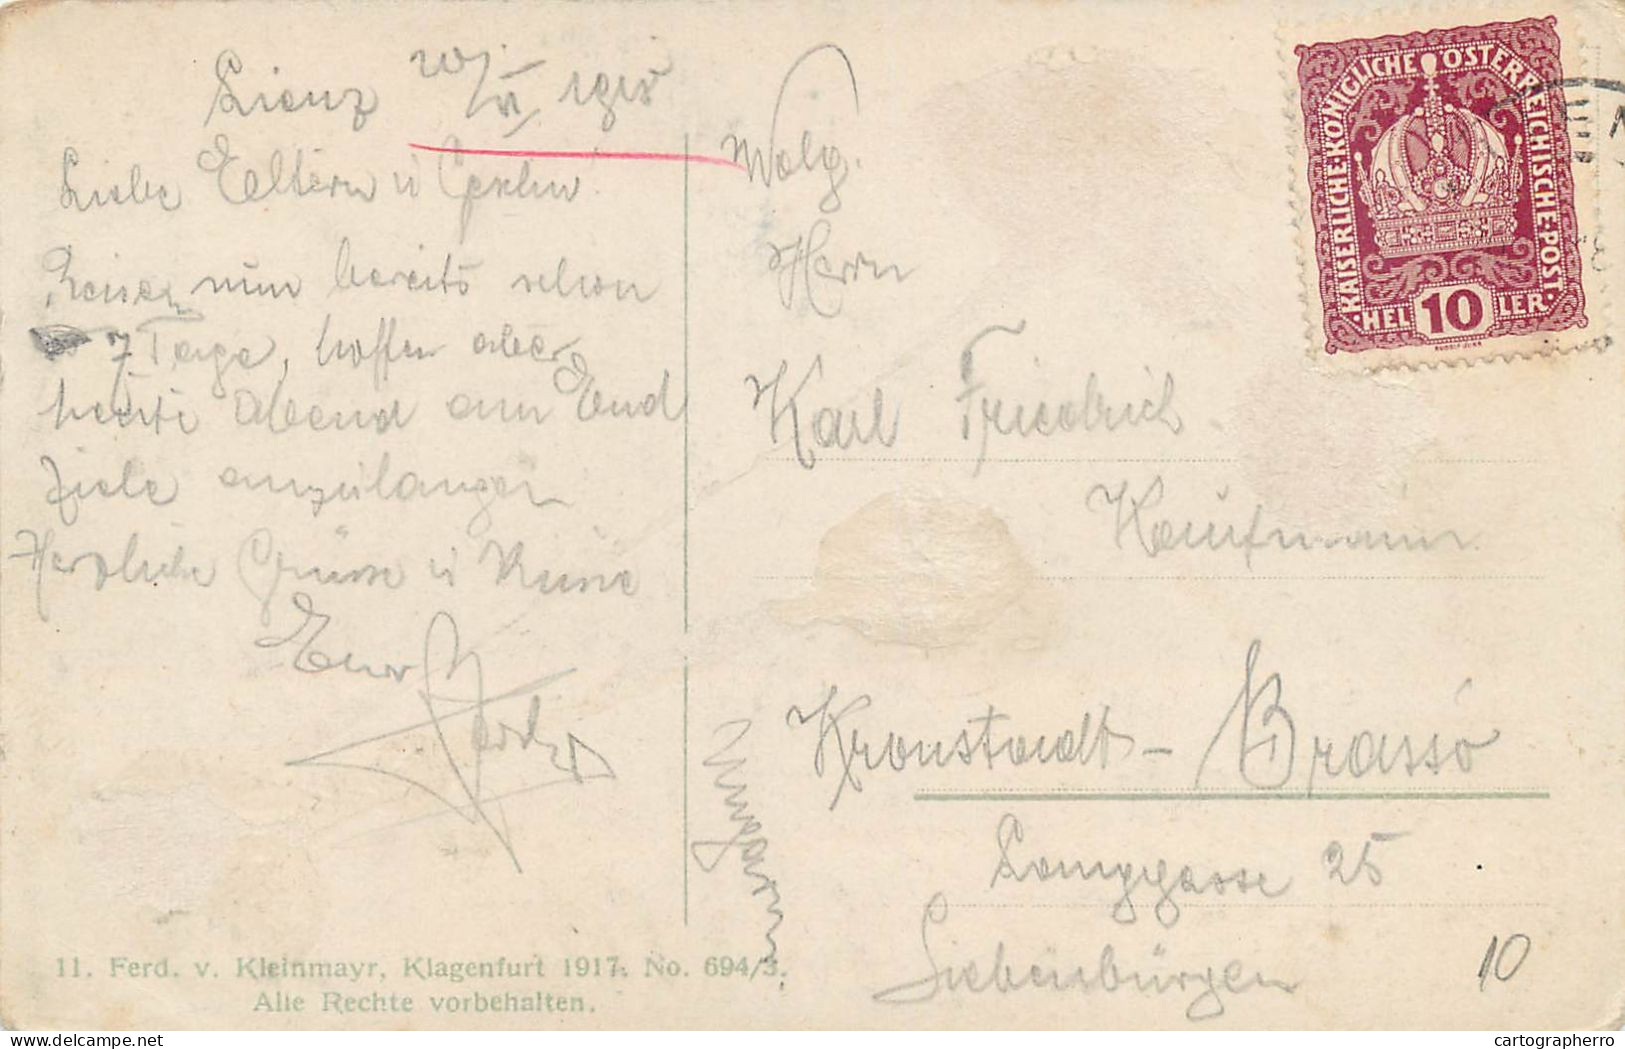 Lienz 20/VI 1918
Liebe Eltern u
Reisen nun bereits schon
7 Tage, hoffen aber
heute Abend am End
Ziele anzulangen
Herzliche Grüsse u Küsse
Euer
Wolg.
Herrn
Karl Friedrich
Kaufmann
Kronstadt - Brassó
Langgasse 25
Siebenbürgen
Ungarn
10
KAISERLICHE·KÖNIGLICHE ÖSTERREICHISCHE·POST·
·HEL 10 LER·
11. Ferd. v. Kleinmayr, Klagenfurt 1917. No. 694/3.
Alle Rechte vorbehalten.
delcampe.net
cartographerro